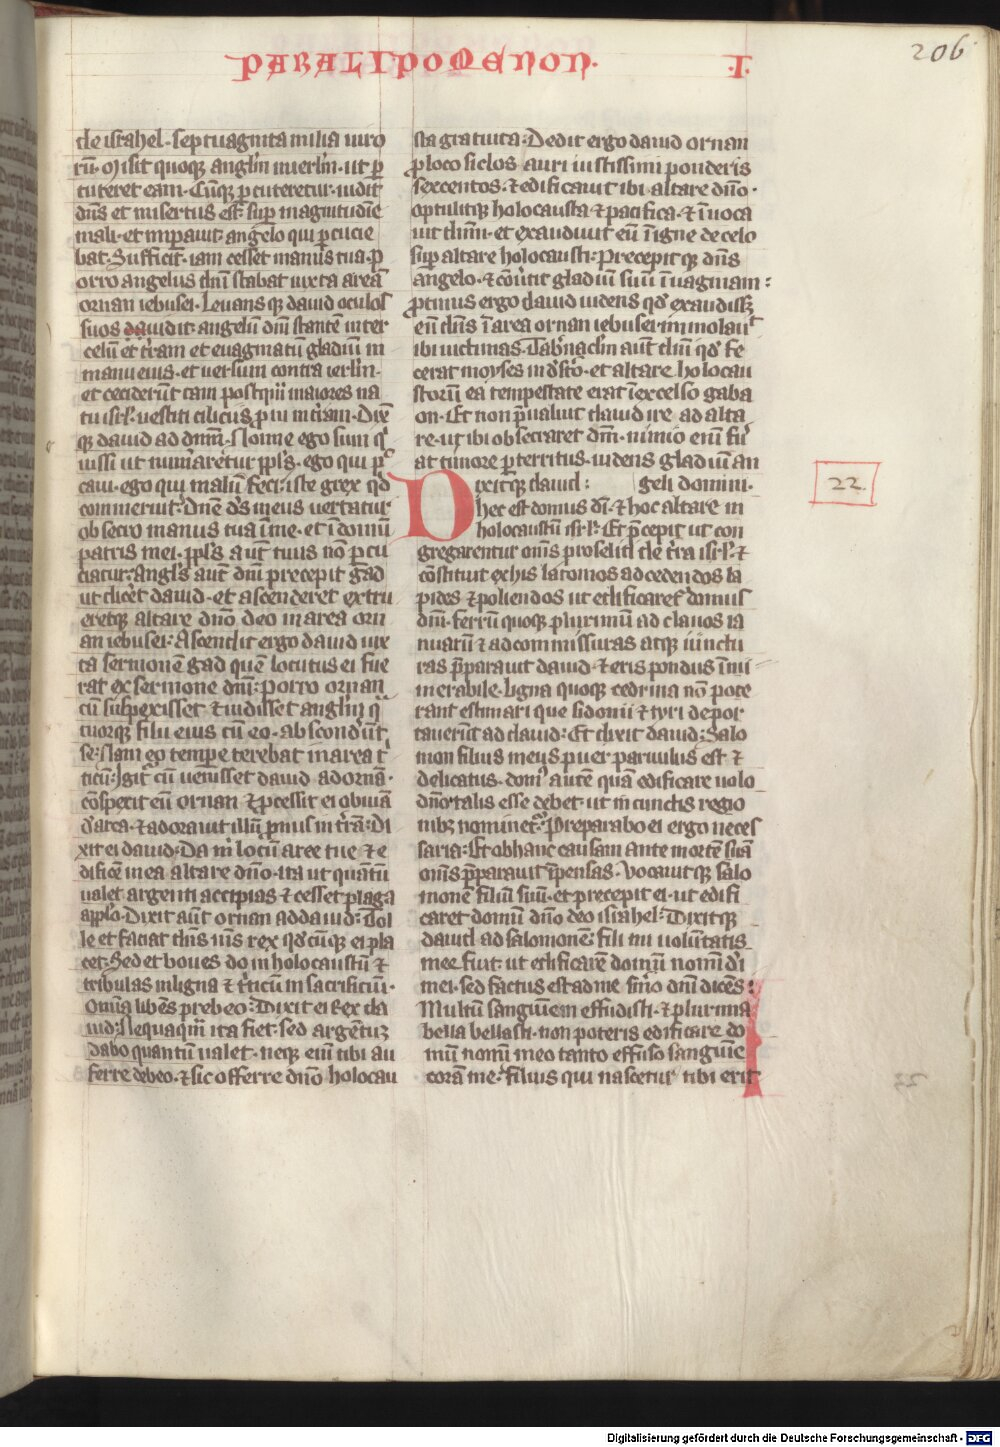 PARALIPOMENON. .I.
206
de israhel. septuaginta milia uiro
rū. Misit quoqꝫ angl̄m in ierl̄m. ut ꝑ
cuteret eam. Cūqꝫ ꝑcuteretur. uidit
dn̄s et misertus est. suꝑ magnitudīe
mali. et imꝑauit. angelo qui ꝑcucie
bat. Sufficit. iam cesset manus tua. P
orro angelus dn̄i stabat iuxta areā
ornan iebusei. Leuansqꝫ dauid oculos
suos dauidit. angelū dn̄i stantē inter
celū et t̄ram et euaginatū gladiū in
manu eius. et uersum contra ierl̄m.
et ceciderūt tam postquā maiores na
tu isrl̓. uestiti ciliciis ꝓni in t̄ram. Dixit
qꝫ dauid ad dn̄m. Nonne ego sum q̓
iussi ut num̄aretur ppl̓s. ego qui pec
caui. ego qui malū feci: iste grex qd̓
commeruit? Dn̄e d̓s meus uertatur
obsecro manus tua ī me. et ī domū
patris mei. ppl̓s aūt tuus nō ꝑcu
ciatur. Angl̓s aūt dn̄i precepit gad
ut dic̄et dauid. et ascenderet extru
eretqꝫ altare dn̄o deo in area orn
an iebusei: Ascendit ergo dauid iux
ta sermonē gad quē locutus ei fue
rat ex sermone dn̄i: Porro ornan
cū suspexisset. ⁊ uidisset angl̄m q̓
tuorqꝫ filii eius cū eo. absconder̄t
se: Nam eo tempe terebat in area t̓
ticū: Igit̓ cū uenisset dauid ad ornā.
cōspexit eū ornan ⁊ ꝓcessit ei obuiā
d̓ area. ⁊ adorauit illū ꝓnus in t̄rā: Di
xit ei dauid: Da m̓ locū aree tue ⁊ e
dificē in ea altare dn̄o. ita ut quātū
ualet argenti accipias ⁊ cesset plaga
a ppl̓o. Dixit aūt ornan ad dauid: Tol
le et faciat dn̄s m̄s rex qd̓cūqꝫ ei pla
cet. Sed et boues do in holocaustū ⁊
tribulas in ligna ⁊ t̓ticū in sacrificiū.
omīa libēs prebeo: Dixit ei Rex da
uid: Nequaqm̄ ita fiet. sed argētuꝫ
dabo quantū ualet. neqꝫ eni tibi au
ferre debeo. ⁊ sic offerre dn̄o holocau
sta gratuita: Dedit ergo dauid ornan
ꝓ loco siclos auri iustissimi ponderis
sexcentos. ⁊ edificauit ibi altare dn̄o.
optulitqꝫ holocausta ⁊ pacifica. ⁊ īuoca
uit dn̄m. et exaudiuit eū ī igne de celo
suꝑ altare holocausti: Precepitqꝫ dn̄s
angelo. ⁊ cōu̓tit gladiū suū ī uaginam:
ꝓtinus ergo dauid uidens qd̓ exaudissꝫ
eū dn̄s ī area ornan iebusei immolauit
ibi uictimas. Tab̄nacl̄m aūt dn̄i qd̓ fe
cerat moyses in d̓s̄to. et altare holocau
storū ea tempestate erat ī excelso gaba
on. Et non p̄ualuit dauid ire ad alta
re. ut ibi obsecraret dm̄. nimio enī fu̓
at timore ꝑterritus. uidens gladiū an
geli domini.
Dixitqꝫ dauid:
22
hec est domus dī. ⁊ hoc altare in
holocaustū isrl̓. Et p̄cepit ut con
gregarentur om̄s proseliti de t̄ra isrl̓. ⁊
cōstituit ex his latomos ad cedendos la
pides ⁊ poliendos ut edificaret̓ domus
dn̄i. ferrū quoqꝫ plurimū ad clauos ia
nuarū ⁊ ad commissuras atqꝫ iūctu
ras p̄parauit dauid. ⁊ eris pondus īnu
merabile. ligna quoqꝫ cedrina nō pote
rant estimari que sidonii ⁊ tyri depor
tauerūt ad dauid: Et dixit dauid: Salo
mon filius meus puer paruulus est ⁊
delicatus. dom̓ autē quā edificare uolo
dn̄o. talis esse debet. ut in cunctis regio
nibꝫ nominet̓: Preparabo ei ergo neces
saria: Et ob hanc causam ante mortē suā
om̄s p̄parauit īpensas. Vocauitqꝫ salo
monē filiū suū. et precepit ei. ut edifi
caret domū dn̄o deo israhel: Dixitqꝫ
dauid ad salomonē: fili mi uolūtatis
mee fuit. ut edificarē domū nomī d̓i
mei. sed factus est ad me s̓mo dn̄i dicēs:
Multū sanguinem effudisti. ⁊ plurima
bella bellasti. non poteris edificare do
mū nomī meo tanto effuso sanguīe
corā me: filius qui nascetur tibi erit
Digitalisierung gefördert durch die Deutsche Forschungsgemeinschaft - DFG